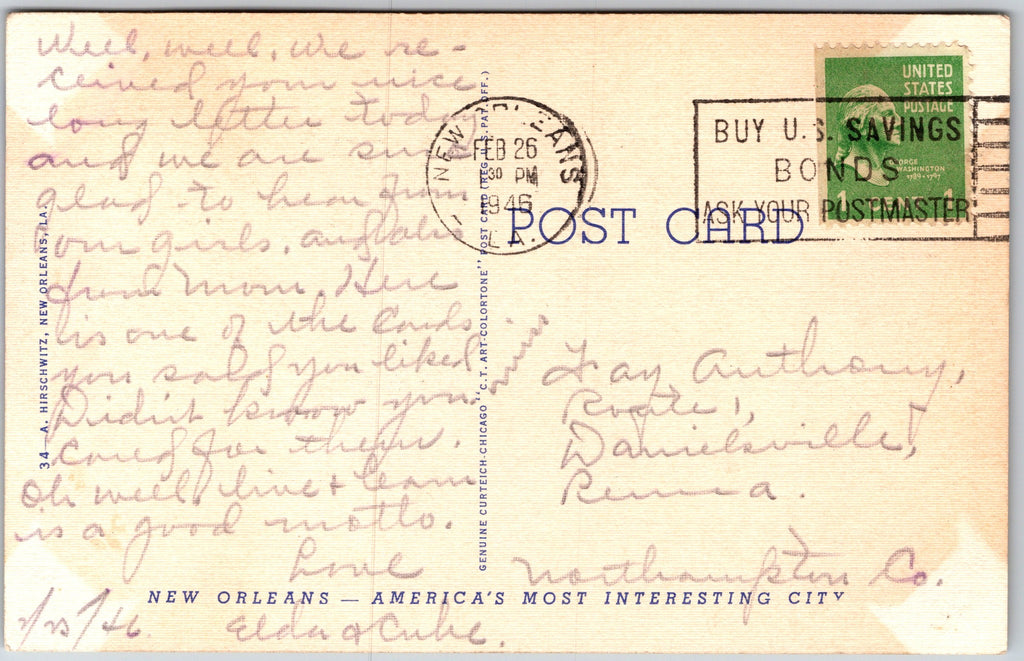 Well, well, we re-
ceived your nice
long letter today
and we are sure
glad to hear from
our girls, and also
from Mom. Here
is one of the cards
you said you liked
Didn't know you
cared for them.
Oh well, live + learn
is a good motto.
Love
Elda &
2/25/46
34—A. HIRSCHWITZ, NEW ORLEANS, LA.
GENUINE CURTEICH-CHICAGO "C.T. ART-COLORTONE" POST CARD (REG. U.S. PAT. OFF.)
NEW ORLEANS
FEB 26
30 PM
1946
LA.
BUY U.S. SAVINGS
BONDS
ASK YOUR POSTMASTER
UNITED
STATES
POSTAGE
GEORGE
WASHINGTON
1789-1797
1
POST CARD
Fay Anthony,
Route 1,
Danielsville,
Penna.
Northampton Co.
NEW ORLEANS — AMERICA'S MOST INTERESTING CITY